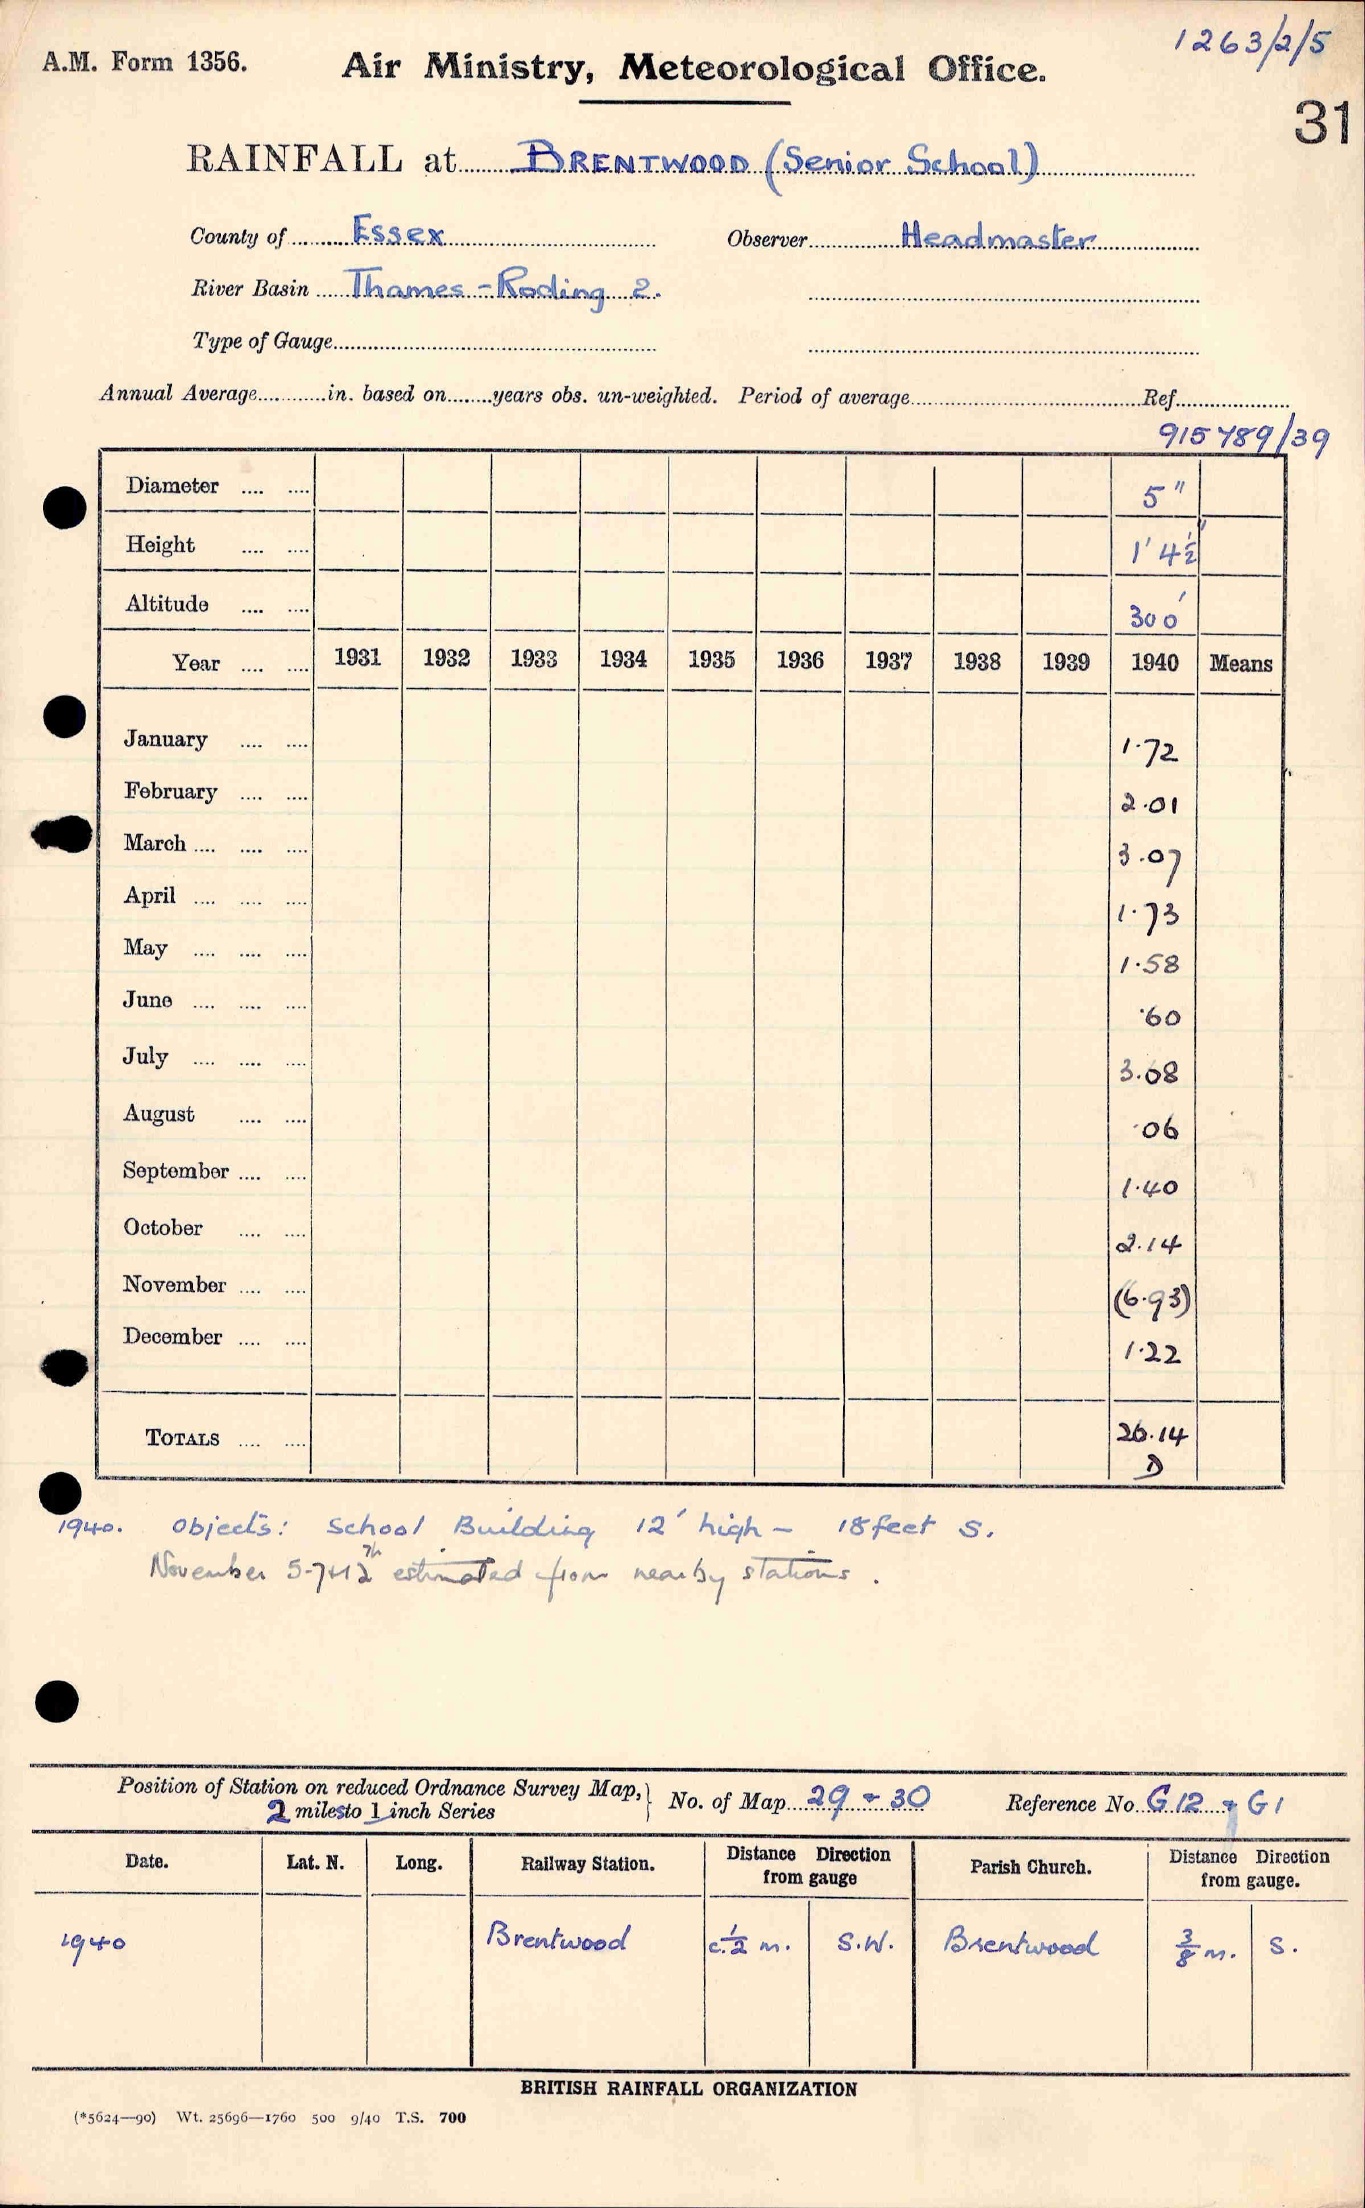 1263/2/5
A.M. Form 1356. Air Ministry, Meteorological Office.
31
RAINFALL at BRENTWOOD (Senior School)
County of Essex Observer Headmaster
River Basin Thames - Roding 2.
Type of Gauge
Annual Average in. based on years obs. un-weighted. Period of average Ref
915789/39
Diameter 5"
Height 1' 4½"
Altitude 300'
Year 1931 1932 1933 1934 1935 1936 1937 1938 1939 1940 Means
January 1.72
February 2.01
March 3.07
April 1.73
May 1.58
June .60
July 3.68
August .06
September 1.40
October 2.14
November (6.93)
December 1.22
TOTALS 26.14
D
1940. Objects: School Building 12' high - 18 feet S.
November 5-7+12th estimated from nearby stations.
Position of Station on reduced Ordnance Survey Map, } No. of Map 29 + 30 Reference No. G12 + G1
2 miles to 1 inch Series
Date. Lat. N. Long. Railway Station. Distance Direction from gauge Parish Church. Distance Direction from gauge.
1940 Brentwood c. ½ m. S.W. Brentwood ⅜ m. S.
BRITISH RAINFALL ORGANIZATION
(*5624—90) Wt. 25696—1760 500 9/40 T.S. 700